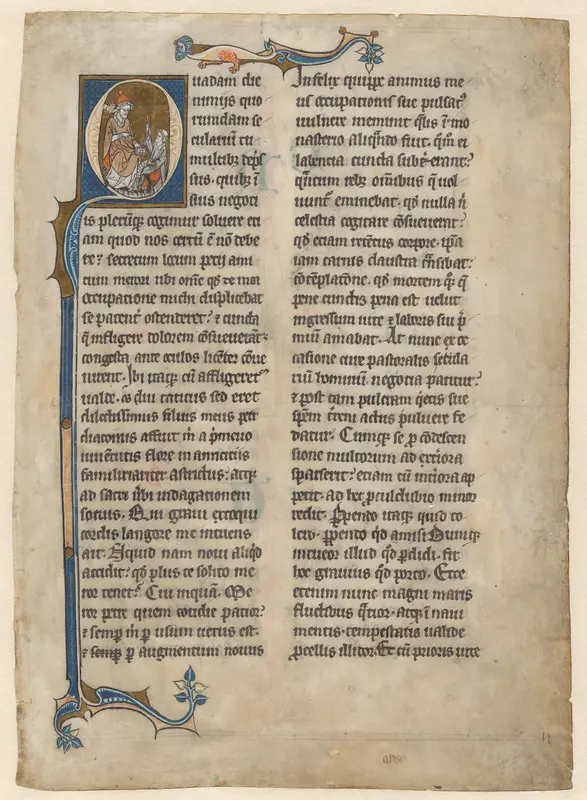 Quadam die
nimijs quo
rundam se
culariū tu
multibꝫ dep̄s
sus. quibꝫ ī
suis negoci
is plerūqꝫ cogimur soluere eti
am quod nos certū ē nō debe
re? secretum locum petij ami
cum merori ubi omne qd̄ de mea
occupatione michi displicebat
se patent̾ ostenderet? ⁊ cuncta
q̄ infligere dolorem cōsueuerāt?
congesta ante oculos licēter cōue
nirent. Ibi itaqꝫ cū affligeret᷑
ualde. ⁊ diu tacitus sed eret
dilectissimus filius meus petr̾
diaconus affuit m̄ a p̄meuo
iuuentutis flore in amicicijs
familiariter astrictus: atqꝫ
ad sacri ūbi indagationem
socius. Qui graui excoqui
cordis langore me intuens
ait. Aliquid nam noui aliqd̄
accidit? qd̄ plus te solito me
ror tenet? Cui inquā. Me
ror petre quem cotidie patior?
⁊ semꝑ m̄ ꝑ usum uetus est.
⁊ semꝑ ꝑ augmentum nouus
Infelix quippe animus me
us occupationis sue pulsat᷑
uulnere meminit q̄lis ī mo
nasterio aliqn̄do fuit. qm̄ ei
labentia cuncta subt̾ erant?
q̄ntum rebꝫ om̄ibus q̄ uol
uunt᷑ eminebat. qd̄ nulla ñ
celestia cogitare cōsueuerat?
qd̄ eciam retētus corpore. ip̄a
iam carnis claustra t̄nsibat?
cōtēplac̄one. qd̄ mortem q̄ꝫ q̄
pene cunctis pena est uelut
ingressum uite ⁊ laboris sui p̄
miū amabat. At nunc ex oc
casione cure pastoralis secula
riū hominū negocia patitur?
⁊ post tam pulcram q̄etis sue
sp̄em t̾reni actus puluere fe
datur. Cumqꝫ se ꝓ cōdescen
sione multorum ad ext̾iora
sparserit? etiam cū int̾iora ap
petit. ad hec ꝓculdubio minor
redit. Perpendo itaqꝫ quid to
lero. ꝑpendo qd̄ amisi Dumqꝫ
intueor illud qd̄ ꝑdidi. fit
hoc grauius qd̄ porto. Ecce
etenim nunc magni maris
fluctibus q̄tior. atqꝫ ī naui
mentis. tempestatis ualide
ꝓcellis illidor. Et cū prioris uite